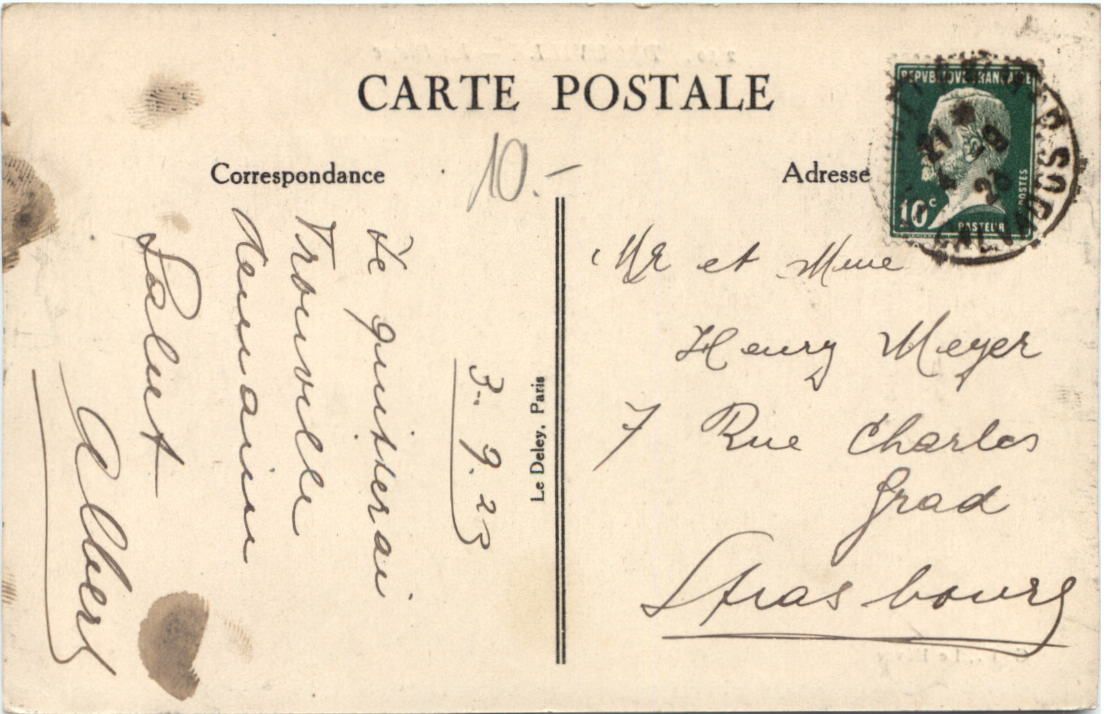 CARTE POSTALE
Correspondance
10.-
Adresse
REPVBLIQVE FRANÇAISE
POSTES
10c
PASTEUR
21 *
4 -9
23
CALVADOS
3-9.23
Je quitterai
Trouville
demain
Salut
Albert
Le Deley, Paris
Mr et Mme
Henry Meyer
7 Rue Charles
Grad
Strasbourg